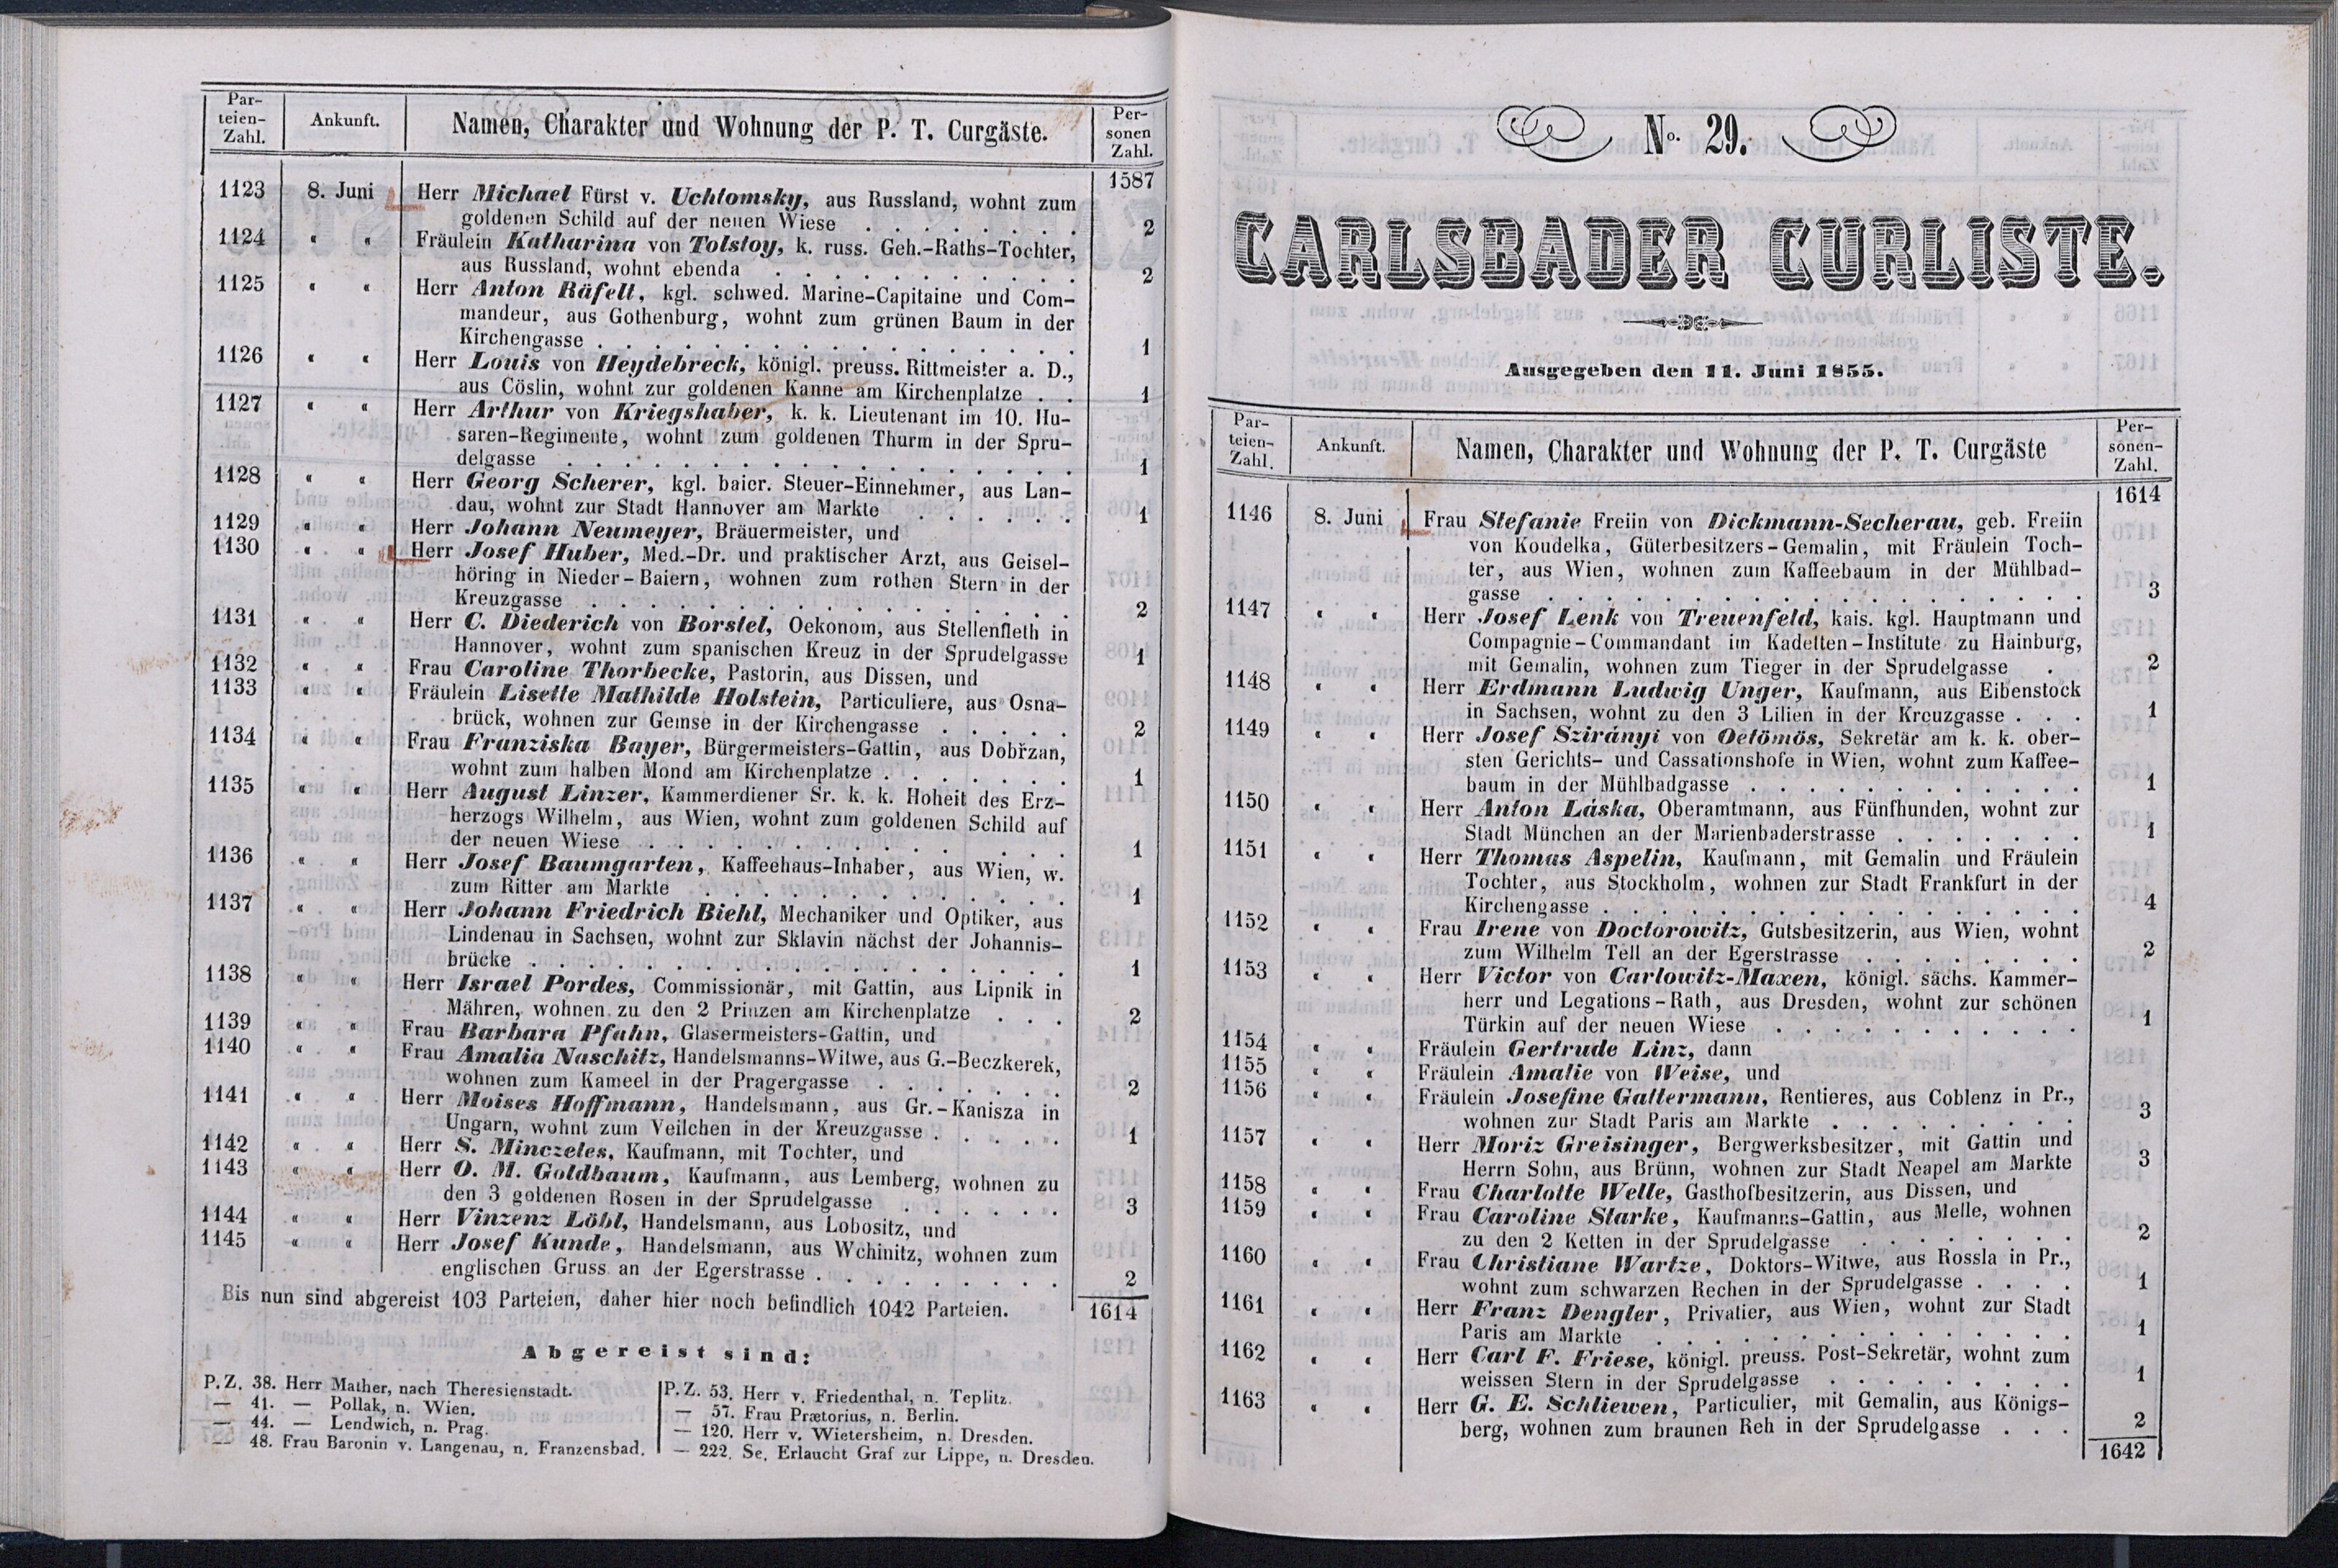 Par-
teien-
Zahl.
Ankunft.
Namen, Charakter und Wohnung der P. T. Curgäste.
Per-
sonen
Zahl.
1587
1123 8. Juni Herr Michael Fürst v. Uchtomsky, aus Russland, wohnt zum
goldenen Schild auf der neuen Wiese . . . . . . . . 2
1124 « « Fräulein Katharina von Tolstoy, k. russ. Geh.-Raths-Tochter,
aus Russland, wohnt ebenda . . . . . . . . . . . 2
1125 « « Herr Anton Räfelt, kgl. schwed. Marine-Capitaine und Com-
mandeur, aus Gothenburg, wohnt zum grünen Baum in der
Kirchengasse . . . . . . . . . . . . . . . . . 1
1126 « « Herr Louis von Heydebreck, königl. preuss. Rittmeister a. D.,
aus Cöslin, wohnt zur goldenen Kanne am Kirchenplatze . . 1
1127 « « Herr Arthur von Kriegshaber, k. k. Lieutenant im 10. Hu-
saren-Regimente, wohnt zum goldenen Thurm in der Spru-
delgasse . . . . . . . . . . . . . . . . . . 1
1128 « « Herr Georg Scherer, kgl. baier. Steuer-Einnehmer, aus Lan-
dau, wohnt zur Stadt Hannover am Markte . . . . . . 1
1129 « « Herr Johann Neumeyer, Bräuermeister, und
1130 « « Herr Josef Huber, Med.-Dr. und praktischer Arzt, aus Geisel-
höring in Nieder-Baiern, wohnen zum rothen Stern in der
Kreuzgasse . . . . . . . . . . . . . . . . . 2
1131 « « Herr C. Diederich von Borstel, Oekonom, aus Stellenfleth in
Hannover, wohnt zum spanischen Kreuz in der Sprudelgasse 1
1132 « « Frau Caroline Thorbecke, Pastorin, aus Dissen, und
1133 « « Fräulein Lisette Mathilde Holstein, Particuliere, aus Osna-
brück, wohnen zur Gemse in der Kirchengasse . . . . . 2
1134 « « Frau Franziska Bayer, Bürgermeisters-Gattin, aus Dobřzan,
wohnt zum halben Mond am Kirchenplatze . . . . . . . 1
1135 « « Herr August Linzer, Kammerdiener Sr. k. k. Hoheit des Erz-
herzogs Wilhelm, aus Wien, wohnt zum goldenen Schild auf
der neuen Wiese . . . . . . . . . . . . . . . 1
1136 « « Herr Josef Baumgarten, Kaffeehaus-Inhaber, aus Wien, w.
zum Ritter am Markte . . . . . . . . . . . . . 1
1137 « « Herr Johann Friedrich Biehl, Mechaniker und Optiker, aus
Lindenau in Sachsen, wohnt zur Sklavin nächst der Johannis-
brücke . . . . . . . . . . . . . . . . . . . 1
1138 « « Herr Israel Pordes, Commissionär, mit Gattin, aus Lipnik in
Mähren, wohnen zu den 2 Prinzen am Kirchenplatze . . . 2
1139 « « Frau Barbara Pfahn, Glasermeisters-Gattin, und
1140 « « Frau Amalia Naschitz, Handelsmanns-Witwe, aus G.-Beczkerek,
wohnen zum Kameel in der Pragergasse . . . . . . . 2
1141 « « Herr Moises Hoffmann, Handelsmann, aus Gr.-Kanisza in
Ungarn, wohnt zum Veilchen in der Kreuzgasse . . . . . 1
1142 « « Herr S. Minczeles, Kaufmann, mit Tochter, und
1143 « « Herr O. M. Goldbaum, Kaufmann, aus Lemberg, wohnen zu
den 3 goldenen Rosen in der Sprudelgasse . . . . . . 3
1144 « « Herr Vinzenz Löbl, Handelsmann, aus Lobositz, und
1145 « « Herr Josef Kunde, Handelsmann, aus Wchinitz, wohnen zum
englischen Gruss an der Egerstrasse . . . . . . . . . 2
Bis nun sind abgereist 103 Parteien, daher hier noch befindlich 1042 Parteien. 1614
Abgereist sind:
P.Z. 38. Herr Mather, nach Theresienstadt.
— 41. — Pollak, n. Wien.
— 44. — Lendwich, n. Prag.
— 48. Frau Baronin v. Langenau, n. Franzensbad.
P.Z. 53. Herr v. Friedenthal, n. Teplitz.
— 57. Frau Prætorius, n. Berlin.
— 120. Herr v. Wietersheim, n. Dresden.
— 222. Se. Erlaucht Graf zur Lippe, n. Dresden.
No. 29.
CARLSBADER CURLISTE.
Ausgegeben den 11. Juni 1855.
Par-
teien-
Zahl.
Ankunft.
Namen, Charakter und Wohnung der P. T. Curgäste
Per-
sonen-
Zahl.
1614
1146 8. Juni Frau Stefanie Freiin von Dickmann-Secherau, geb. Freiin
von Koudelka, Güterbesitzers-Gemalin, mit Fräulein Toch-
ter, aus Wien, wohnen zum Kaffeebaum in der Mühlbad-
gasse . . . . . . . . . . . . . . . . . . . 3
1147 « « Herr Josef Lenk von Treuenfeld, kais. kgl. Hauptmann und
Compagnie-Commandant im Kadetten-Institute zu Hainburg,
mit Gemalin, wohnen zum Tieger in der Sprudelgasse . 2
1148 « « Herr Erdmann Ludwig Unger, Kaufmann, aus Eibenstock
in Sachsen, wohnt zu den 3 Lilien in der Kreuzgasse . . . 1
1149 « « Herr Josef Szirányi von Oetömös, Sekretär am k. k. ober-
sten Gerichts- und Cassationshofe in Wien, wohnt zum Kaffee-
baum in der Mühlbadgasse . . . . . . . . . . . . 1
1150 « « Herr Anton Láska, Oberamtmann, aus Fünfhunden, wohnt zur
Stadt München an der Marienbaderstrasse . . . . . . . 1
1151 « « Herr Thomas Aspelin, Kaufmann, mit Gemalin und Fräulein
Tochter, aus Stockholm, wohnen zur Stadt Frankfurt in der
Kirchengasse . . . . . . . . . . . . . . . . . 4
1152 « « Frau Irene von Doctorowitz, Gutsbesitzerin, aus Wien, wohnt
zum Wilhelm Tell an der Egerstrasse . . . . . . . . 2
1153 « « Herr Victor von Carlowitz-Maxen, königl. sächs. Kammer-
herr und Legations-Rath, aus Dresden, wohnt zur schönen
Türkin auf der neuen Wiese . . . . . . . . . . . 1
1154 « « Fräulein Gertrude Linz, dann
1155 « « Fräulein Amalie von Weise, und
1156 « « Fräulein Josefine Gattermann, Rentieres, aus Coblenz in Pr.,
wohnen zur Stadt Paris am Markte . . . . . . . . . 3
1157 « « Herr Moriz Greisinger, Bergwerksbesitzer, mit Gattin und
Herrn Sohn, aus Brünn, wohnen zur Stadt Neapel am Markte 3
1158 « « Frau Charlotte Welle, Gasthofbesitzerin, aus Dissen, und
1159 « « Frau Caroline Starke, Kaufmanns-Gattin, aus Melle, wohnen
zu den 2 Ketten in der Sprudelgasse . . . . . . . . 2
1160 « « Frau Christiane Wartze, Doktors-Witwe, aus Rossla in Pr.,
wohnt zum schwarzen Rechen in der Sprudelgasse . . . . 1
1161 « « Herr Franz Dengler, Privatier, aus Wien, wohnt zur Stadt
Paris am Markte . . . . . . . . . . . . . . . 1
1162 « « Herr Carl F. Friese, königl. preuss. Post-Sekretär, wohnt zum
weissen Stern in der Sprudelgasse . . . . . . . . . 1
1163 « « Herr G. E. Schliewen, Particulier, mit Gemalin, aus Königs-
berg, wohnen zum braunen Reh in der Sprudelgasse . . . 2
1642